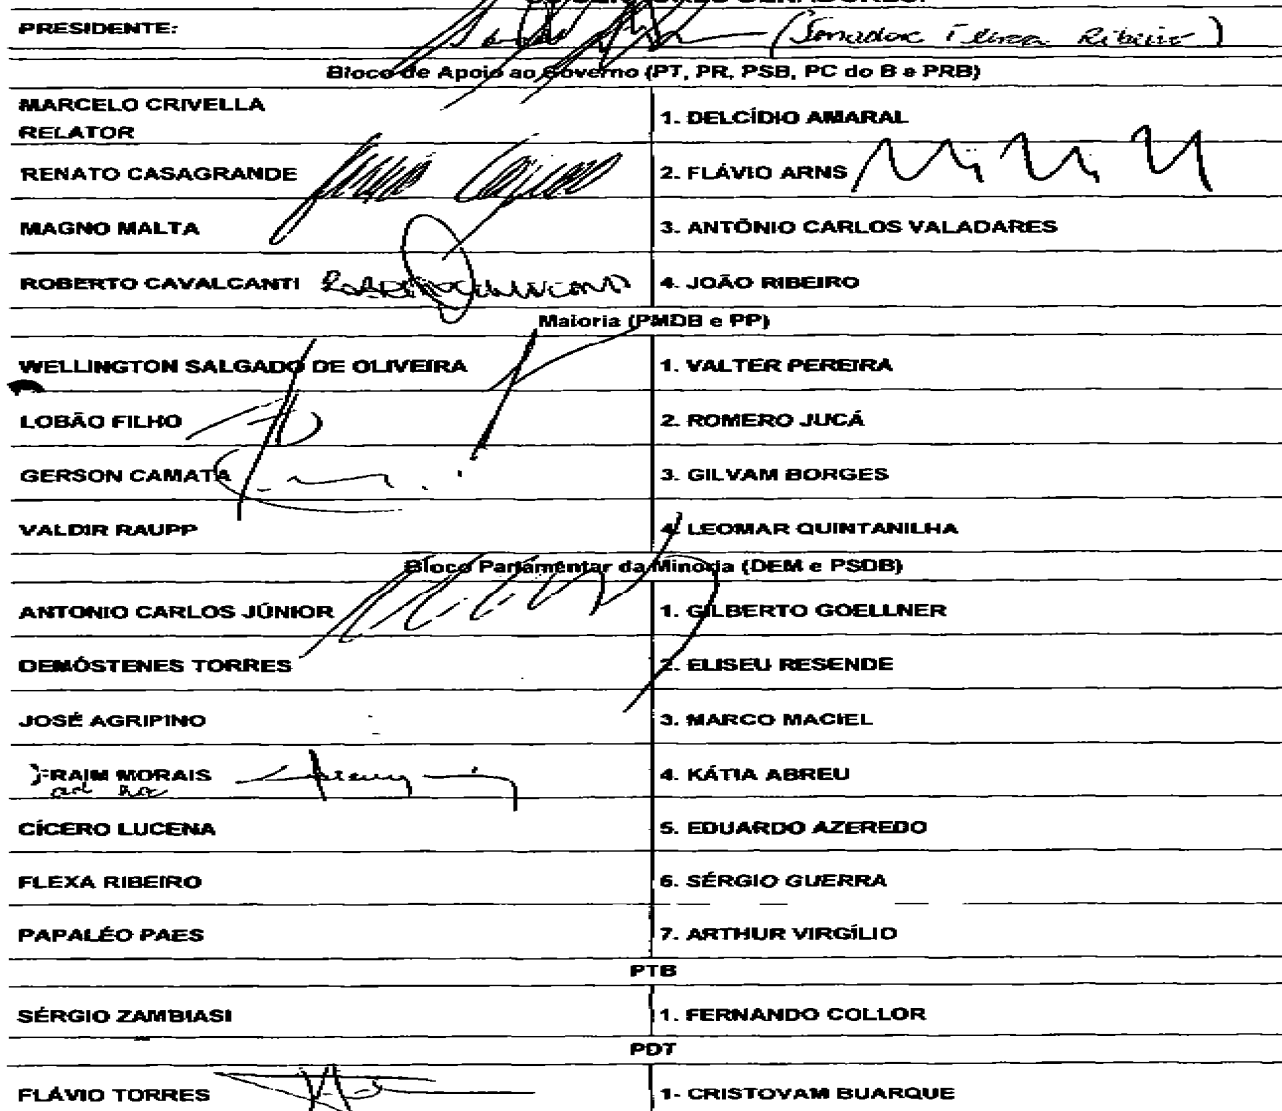 PRESIDENTE: (Senador Flexa Ribeiro)
Bloco de Apoio ao Governo (PT, PR, PSB, PC do B e PRB)
MARCELO CRIVELLA
RELATOR
1. DELCÍDIO AMARAL
RENATO CASAGRANDE
2. FLÁVIO ARNS
MAGNO MALTA
3. ANTÔNIO CARLOS VALADARES
ROBERTO CAVALCANTI
4. JOÃO RIBEIRO
Maioria (PMDB e PP)
WELLINGTON SALGADO DE OLIVEIRA
1. VALTER PEREIRA
LOBÃO FILHO
2. ROMERO JUCÁ
GERSON CAMATA
3. GILVAM BORGES
VALDIR RAUPP
4. LEOMAR QUINTANILHA
Bloco Parlamentar da Minoria (DEM e PSDB)
ANTONIO CARLOS JÚNIOR
1. GILBERTO GOELLNER
DEMÓSTENES TORRES
2. ELISEU RESENDE
JOSÉ AGRIPINO
3. MARCO MACIEL
EFRAIM MORAIS
4. KÁTIA ABREU
CÍCERO LUCENA
5. EDUARDO AZEREDO
FLEXA RIBEIRO
6. SÉRGIO GUERRA
PAPALÉO PAES
7. ARTHUR VIRGÍLIO
PTB
SÉRGIO ZAMBIASI
1. FERNANDO COLLOR
PDT
FLÁVIO TORRES
1- CRISTOVAM BUARQUE